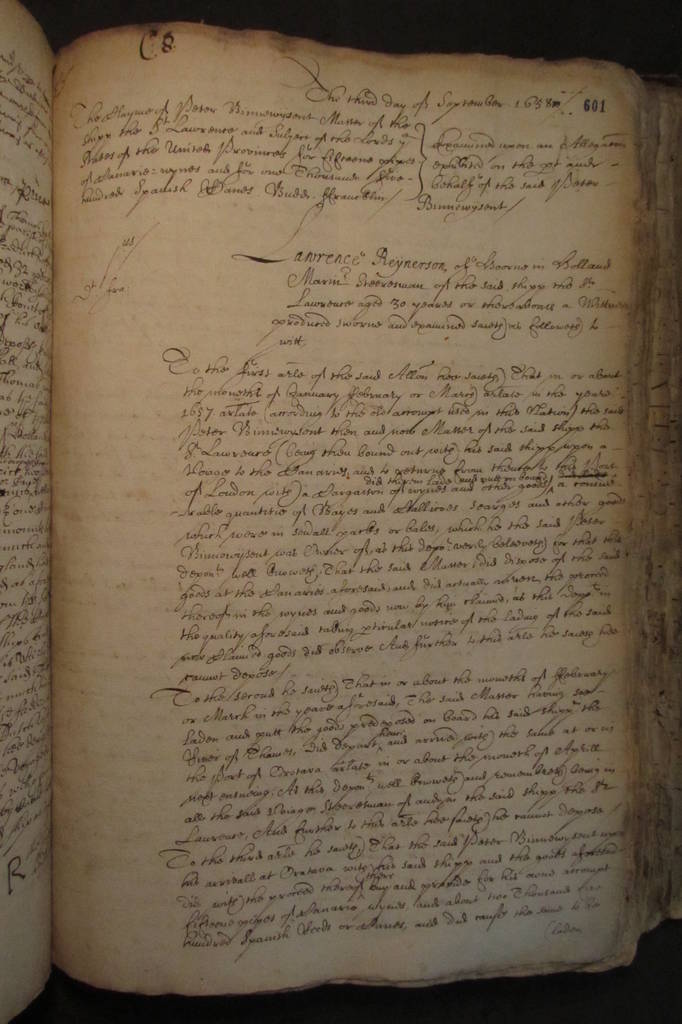 C8
The third day of September 1658
601
The Clayme of Peter Binnewysent Master of the
shipp the St Lawrence and Subject of the Lords ye
States of the United Provinces for fifteene pipes
of Canarie wynes and for one Thousand five
hundred Spanish Canes Budd. ffrancklin
Examined upon an Allegation
exhibited on the pt and
behalf of the said Peter
Binnewysent
Lawrence Reynerson of Hoorne in Holland
Marinr Steeresman of the said shipp the St
Lawrence aged 30 yeares or thereabouts a Wittnes
produced sworne and examined saieth as followeth to
witt
To the first arle of the said Allon hee saieth That in or about
the moneths of January ffebruary or March arlate in the yeare
1657 arlate (according to the old accompt used in this Nation) the said
Peter Binnewysent then and now Master of the said shipp the
St Lawrence (being then bound out with his said shipp upon a
Voiage to the Canaries and to returne from thence to this Port
of London with a Cargaison of wynes and other goods) did then lade and putt on board a conside
rable quantitie of Bayes and Sayes and other goods
which were in small packs or bales, which he the said Peter
Binnewysent was Owner of, as this depot verily beleeveth for that this
depot well knoweth, That the said Master did dispose of the said
goods at the Canaries aforesaid, and did actually invest the proceed
thereof in the wynes and goods now by him claimed, as this depot in
the quality aforesaid taking pticular notice of the lading of the said
now claimed goods did observe And further to this arle he saieth hee
cannot depose
To the second he saieth That in or about the moneths of ffebruary
or March in the yeare aforesaid, The said Master having soe
laden and putt the goods predeposed on board his said shipp the
River of Thames, did depart thence and arrive with the same at or in
the Port of Orotava arlate in or about the moneth of Aprill
next ensueing, As this depot well knoweth and remembreth being in
all the said Voiage Steeresman of and in the said shipp the St
Lawrence, And further to this arle hee saieth he cannot depose
To the third arle he saieth, That the said Peter Binnewysent upon
his arrivall at Oratava with his said shipp and the goods aforesaid
did with the proceed thereof there buy and provide for his owne accompt
fifteene pipes of Canarie wynes and about two Thousand five
hundred Spanish Reeds or Canes, and did cause the same to be
laden